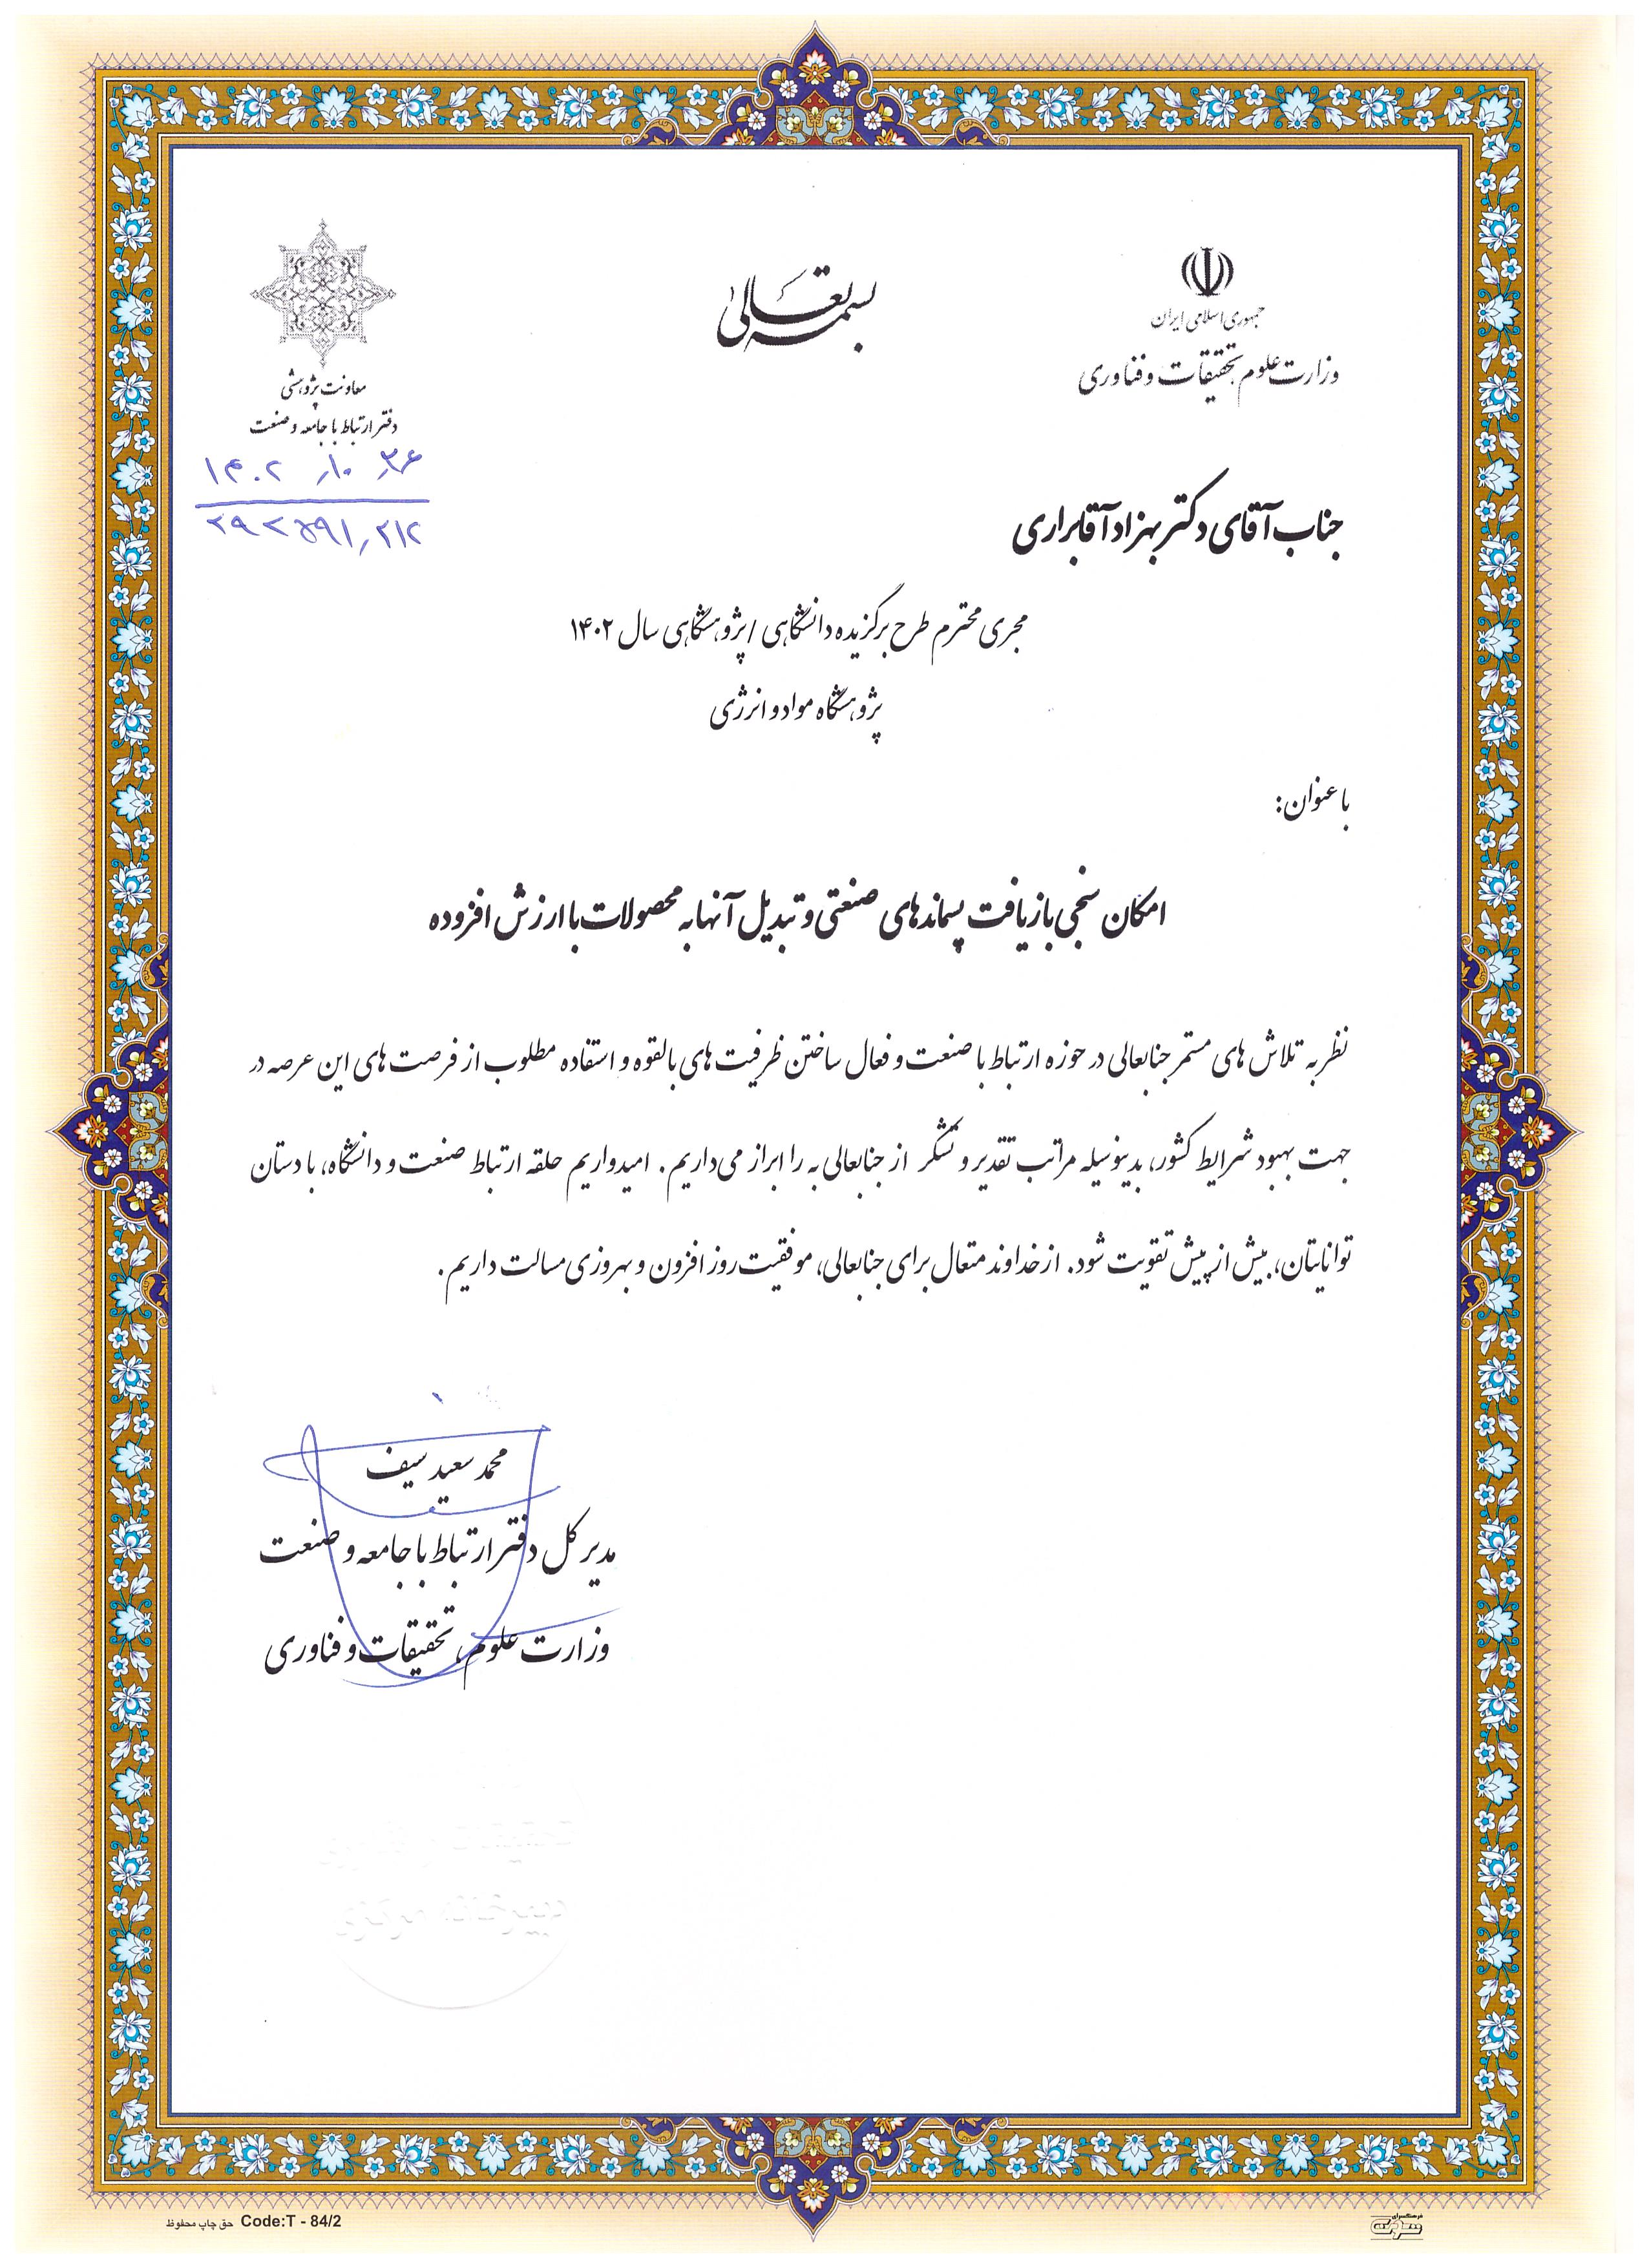 بسمه تعالی
جمهوری اسلامی ایران
وزارت علوم تحقیقات و فناوری
معاونت پژوهشی
دفتر ارتباط با جامعه و صنعت
۱۴۰۲
جناب آقای دکتر بهزاد آقابراری
مجری محترم طرح برگزیده دانشگاهی / پژوهشگاهی سال ۱۴۰۲
پژوهشگاه مواد و انرژی
با عنوان:
امکان سنجی بازیافت پسماندهای صنعتی و تبدیل آنها به محصولات با ارزش افزوده
نظر به تلاش های مستمر جنابعالی در حوزه ارتباط با صنعت و فعال ساختن ظرفیت های بالقوه و استفاده مطلوب از فرصت های این عرصه در
جهت بهبود شرایط کشور، بدینوسیله مراتب تقدیر و تشکر از جنابعالی به را ابراز می داریم. امیدواریم حلقه ارتباط صنعت و دانشگاه، با دستان
توانایتان، بیش از پیش تقویت شود. از خداوند متعال برای جنابعالی، موفقیت روز افزون و بهروزی مسالت داریم.
محمد سعید سیف
مدیر کل دفتر ارتباط با جامعه و صنعت
وزارت علوم، تحقیقات و فناوری
حق چاپ محفوظ Code:T - 84/2